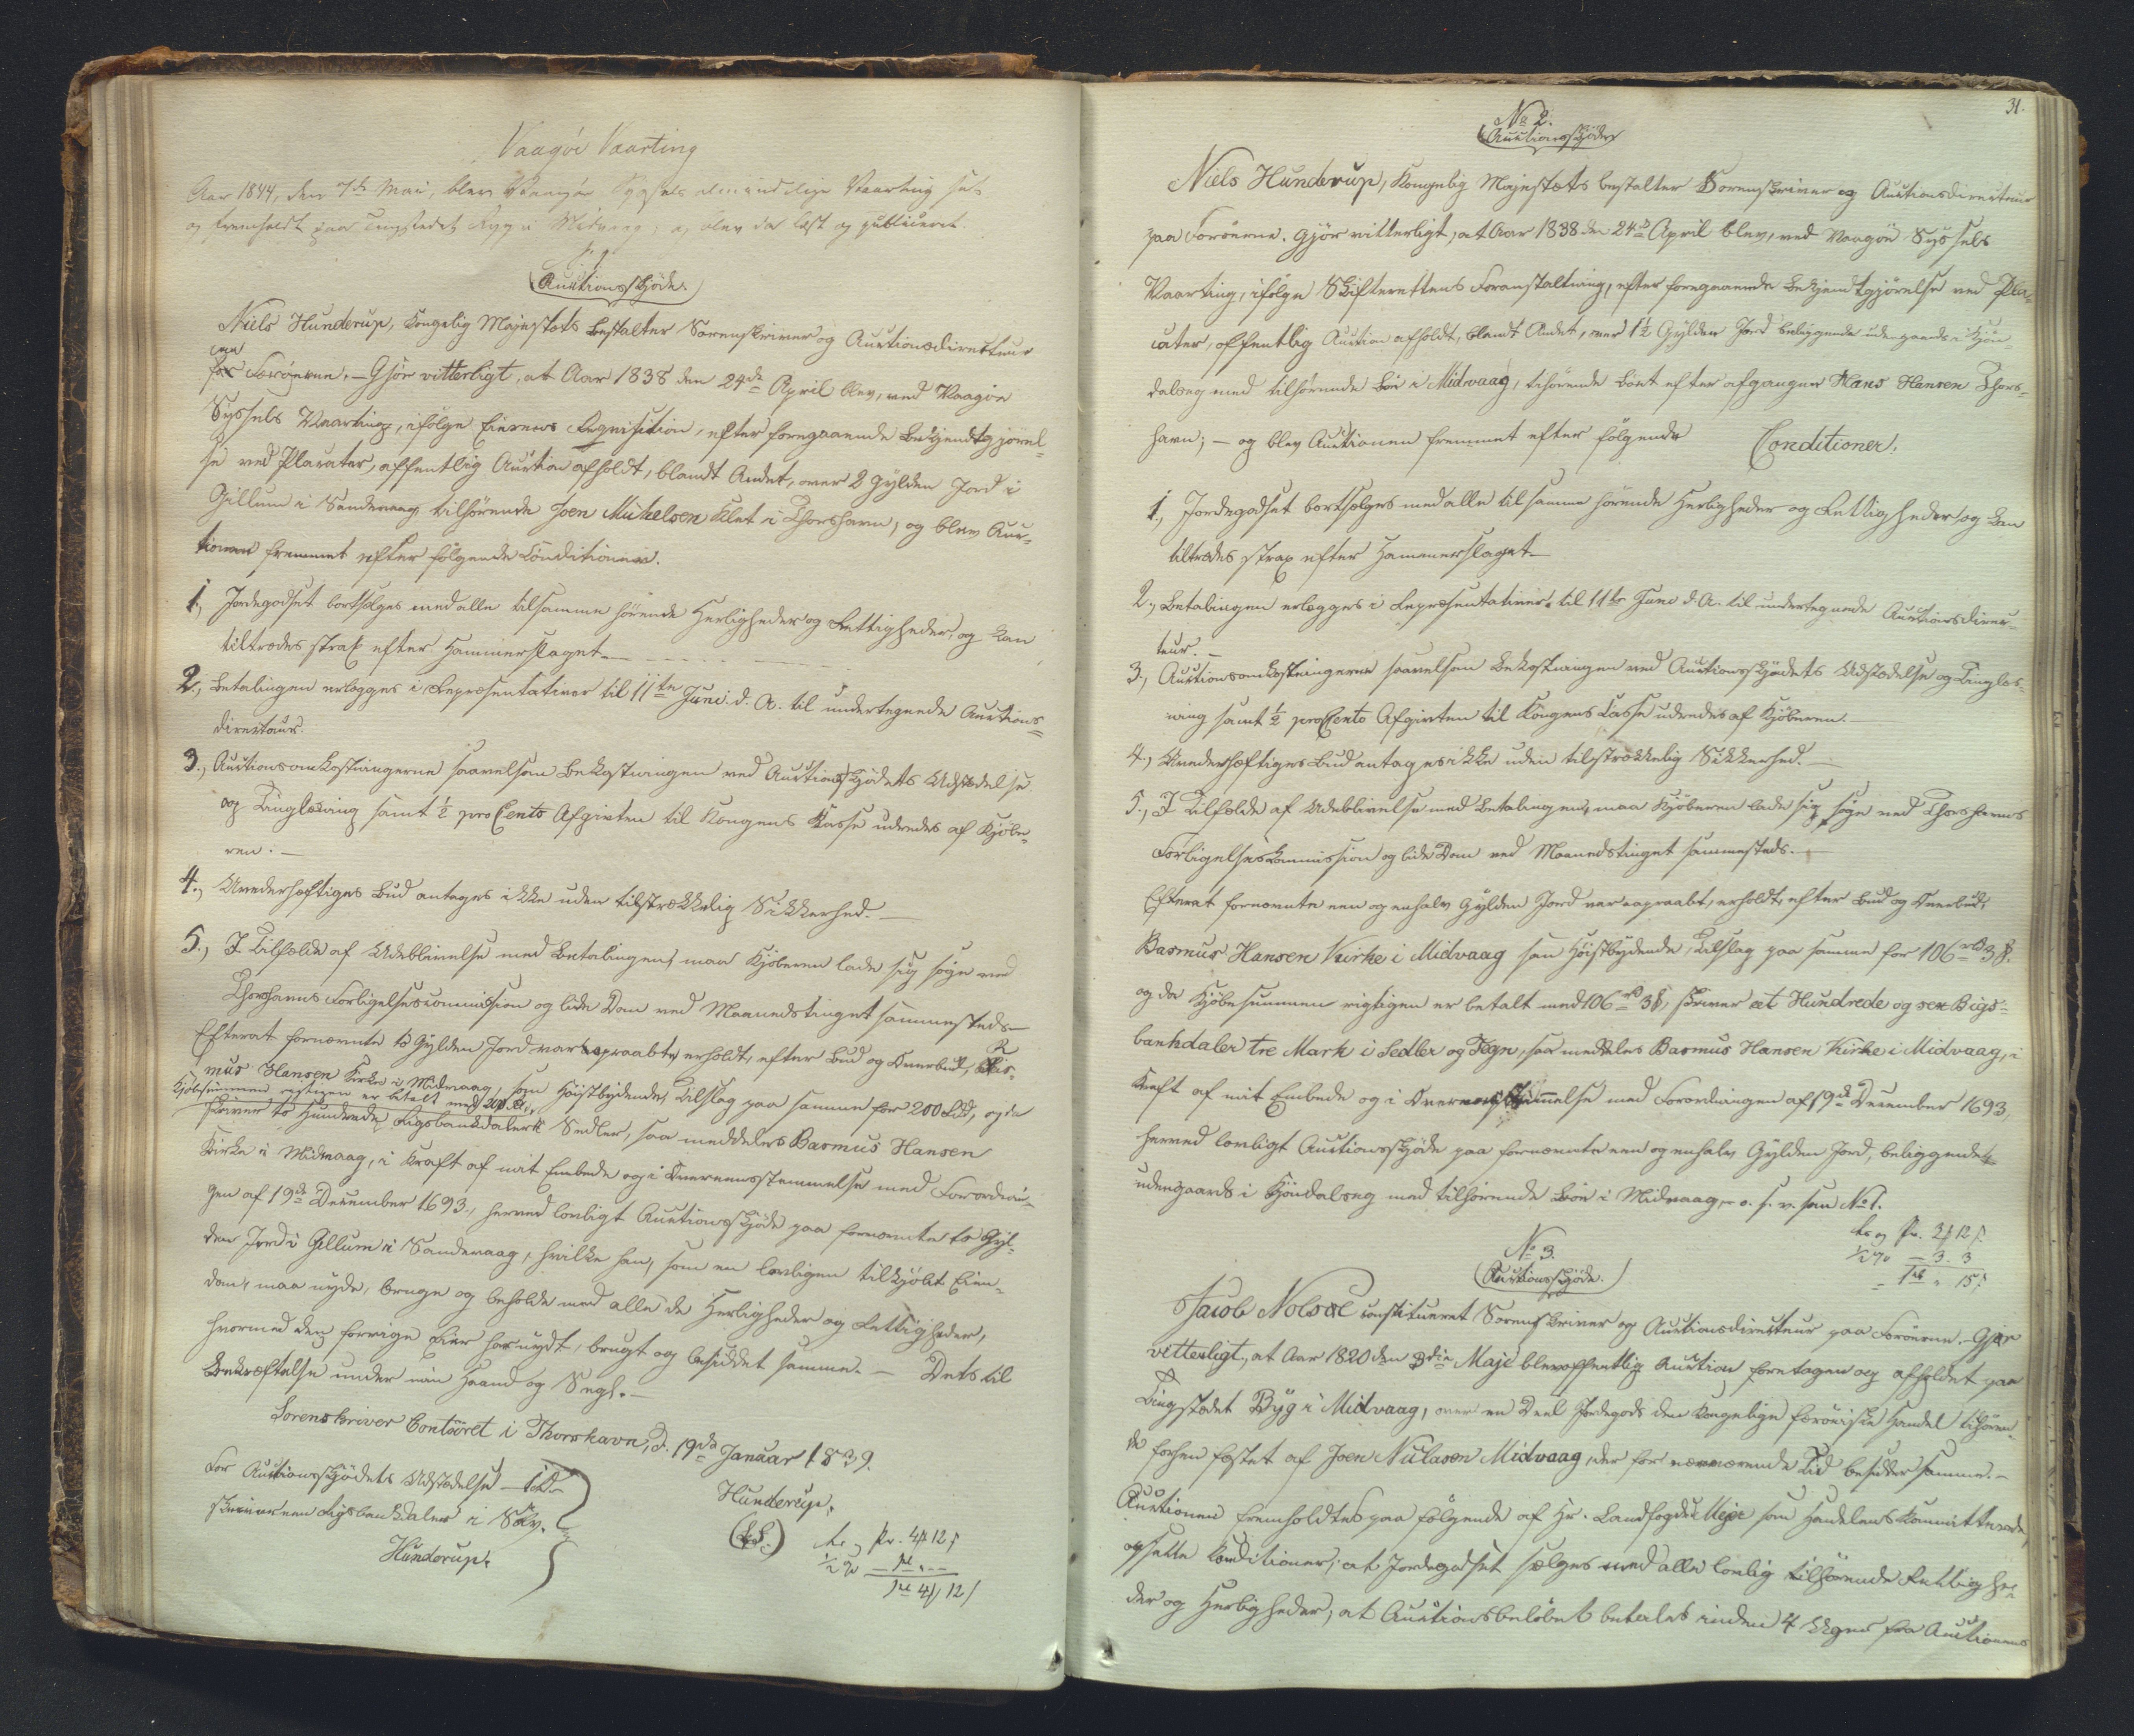 Vaagöe Vaarting
Aar 1844, den 7de Mai, blev Vaagøe Syssels almindelige Vaarting sat
og fremholdt paa Tingstedet Ryg i Midvaag, og blev da læst og publiceret.
No 1.
Auctionsskjöde.
Niels Hunderup, Kongelig Majestæts bestalter Sorenskriver og Auctionsdirecteur
paa
for Færöerne. - Gjör vitterligt, at Aar 1838 den 24de April blev, ved Vaagöe
Syssels Vaarting, ifölge Eierens Reqvisition, efter foregaaende Bekjendtgjörel-
se ved Placater, offentlig Auction afholdt, blandt Andet, over 2 Gylden Jord i
Gillum i Sandevaag tilhörende Joen Michelsen Klet i Thorshavn, og blev Auc-
tionen fremmet efter fölgende Conditioner.
1., Jordegodset bortsælges med alle tilsamme hörende Herligheder og Rettigheder, og kan
tiltrædes strax efter Hammerslaget.
2., Betalingen erlægges i Repræsentativer til 11te Juni d. A. til undertegnede Auctions=
directeur.
3., Auctionsomkostningerne saavelsom Bekostningen ved Auctionsskjödets Udstædelse
og Tinglæsning samt ½ pro Cento Afgivten til Kongens Kasse udredes af Kjöbe-
ren. -
4., Uvederhæftiges Bud antages ikke uden tilstrækkelig Sikkerhed. -
5., I Tilfælde af Udeblivelse med Betalingen, maa Kjöberen lade sig söge ved
Thorshavns Forligelsescommission og lide Dom ved Maanedstinget sammesteds -
Efterat fornævnte to Gylden Jord var opraabt, erholdt, efter Bud og Overbud, Ras-
mus Hansen Kirke i Midvaag, som Höistbydende, Tilslag paa samme for 200 Rbd, og da
Kjöbesummen rigtigen er betalt med 200 Rbd,
skriver to Hundrede Rigsbankdaler i Sedler, saa meddeles Rasmus Hansen
Kirke i Midvaag, i Kraft af mit Embede og i Overeensstemmelse med Forordnin-
gen af 19de December 1693, herved lovligt Auctionsskjöde paa fornævnte to Gyl-
den Jord i Gillum i Sandevaag, hvilke han, som en lovligen tilkjöbt Eien-
dom, maa nyde, bruge og beholde med alle de Herligheder og Rettigheder,
hvormed den forrige Eier har nydt, brugt og besiddet samme. - Dets til
Bekræftelse under min Haand og Segl. -
Sorenskriver Contoiret i Thorshavn, d. 19de Januar 1839.
Hunderup.
(L.S.)
For Auctionsskjödets Udstædelse - 1 Rbd
skriver een Rigsbankdaler i Sölv.
Hunderup.
31.
No 2.
Auctionsskjöde
Niels Hunderup, Kongelig Majestæts bestalter Sorenskriver og Auctionsdirecteur
paa Færöerne. Gjör vitterligt, at Aar 1838 den 24de April blev, ved Vaagöe Syssels
Vaarting, ifölge Skifterettens Foranstaltning, efter foregaaende Bekjendtgjörelse ved Pla-
cater, offentlig Auction afholdt, blandt Andet, over 1½ Gylden Jord beliggende udengaards i Kjön-
dalseg med tilhörende Böe i Midvaag, tilhörende Boet efter afgangne Hans Hansen Thors-
havn; - og blev Auctionen fremmet efter fölgende Conditioner:
1., Jordegodset bortsælges med alle til samme hörende Herligheder og Rettigheder, og kan
tiltrædes strax efter Hammerslaget -
2., Betalingen erlægges i Repræsentativer til 11te Juni d. A. til undertegnede Auctionsdirec-
teur. -
3., Auctionsomkostningerne saavelsom Bekostningen ved Auctionsskjödets Udstædelse og Tinglæs-
ning samt ½ pro Cento Afgivten til Kongens Casse udredes af Kjöberen. -
4., Uvederhæftiges Bud antages ikke uden tilstrækkelig Sikkerhed. -
5., I Tilfælde af Udeblivelse med Betalingen, maa Kjöberen lade sig söge ved Thorshavns
Forligelseskommission og lide Dom ved Maanedstinget sammesteds. -
Efterat fornævnte een og enhalv Gylden Jord var opraabt, erholdt, efter Bud og Overbud,
Rasmus Hansen Kirke i Midvaag som Höistbydende, Tilslag paa samme for 106 rbd 3 ß.
og da Kjöbesummen rigtigen er betalt med 106 rbd 3 ß, skriver et Hundrede og sex Rigs-
bankdaler tre Mark i Sedler og Tegn, saa meddeles Rasmus Hansen Kirke i Midvaag, i
Kraft af mit Embede og i Overeensstemmelse med Forordningen af 19de December 1693,
herved lovligt Auctionsskjöde paa fornævnte een og enhalv Gylden Jord, beliggende
udengaards i Kjöndalseg med tilhörende Böe i Midvaag, - o. s. v. som No 1.
No 3.
Auctionsskjöde.
Jacob Nolsøe constitueret Sorenskriver og Auctionsdirecteur paa Færöerne. - Gjør
vitterligt, at Aar 1820 den 3die Maji blev offentlig Auction foretagen og afholdet paa
Tingstædet Ryg i Midvaag, over en Deel Jordegods den Kongelige færöiske Handel tilhören-
de forhen fæstet af Joen Niclasen Midvaag, der for nærværende Tid besidder samme. -
Auctionen fremholdtes paa fölgende af Hr. Landfoged Meye som Handelens Kommitterede
opsatte Conditioner, at Jordegodset sælges med alle lovlig tilhörende Rettighe-
der og Herligheder, at Auctionsbelöbet betales inden 4 Uger fra Auctionens